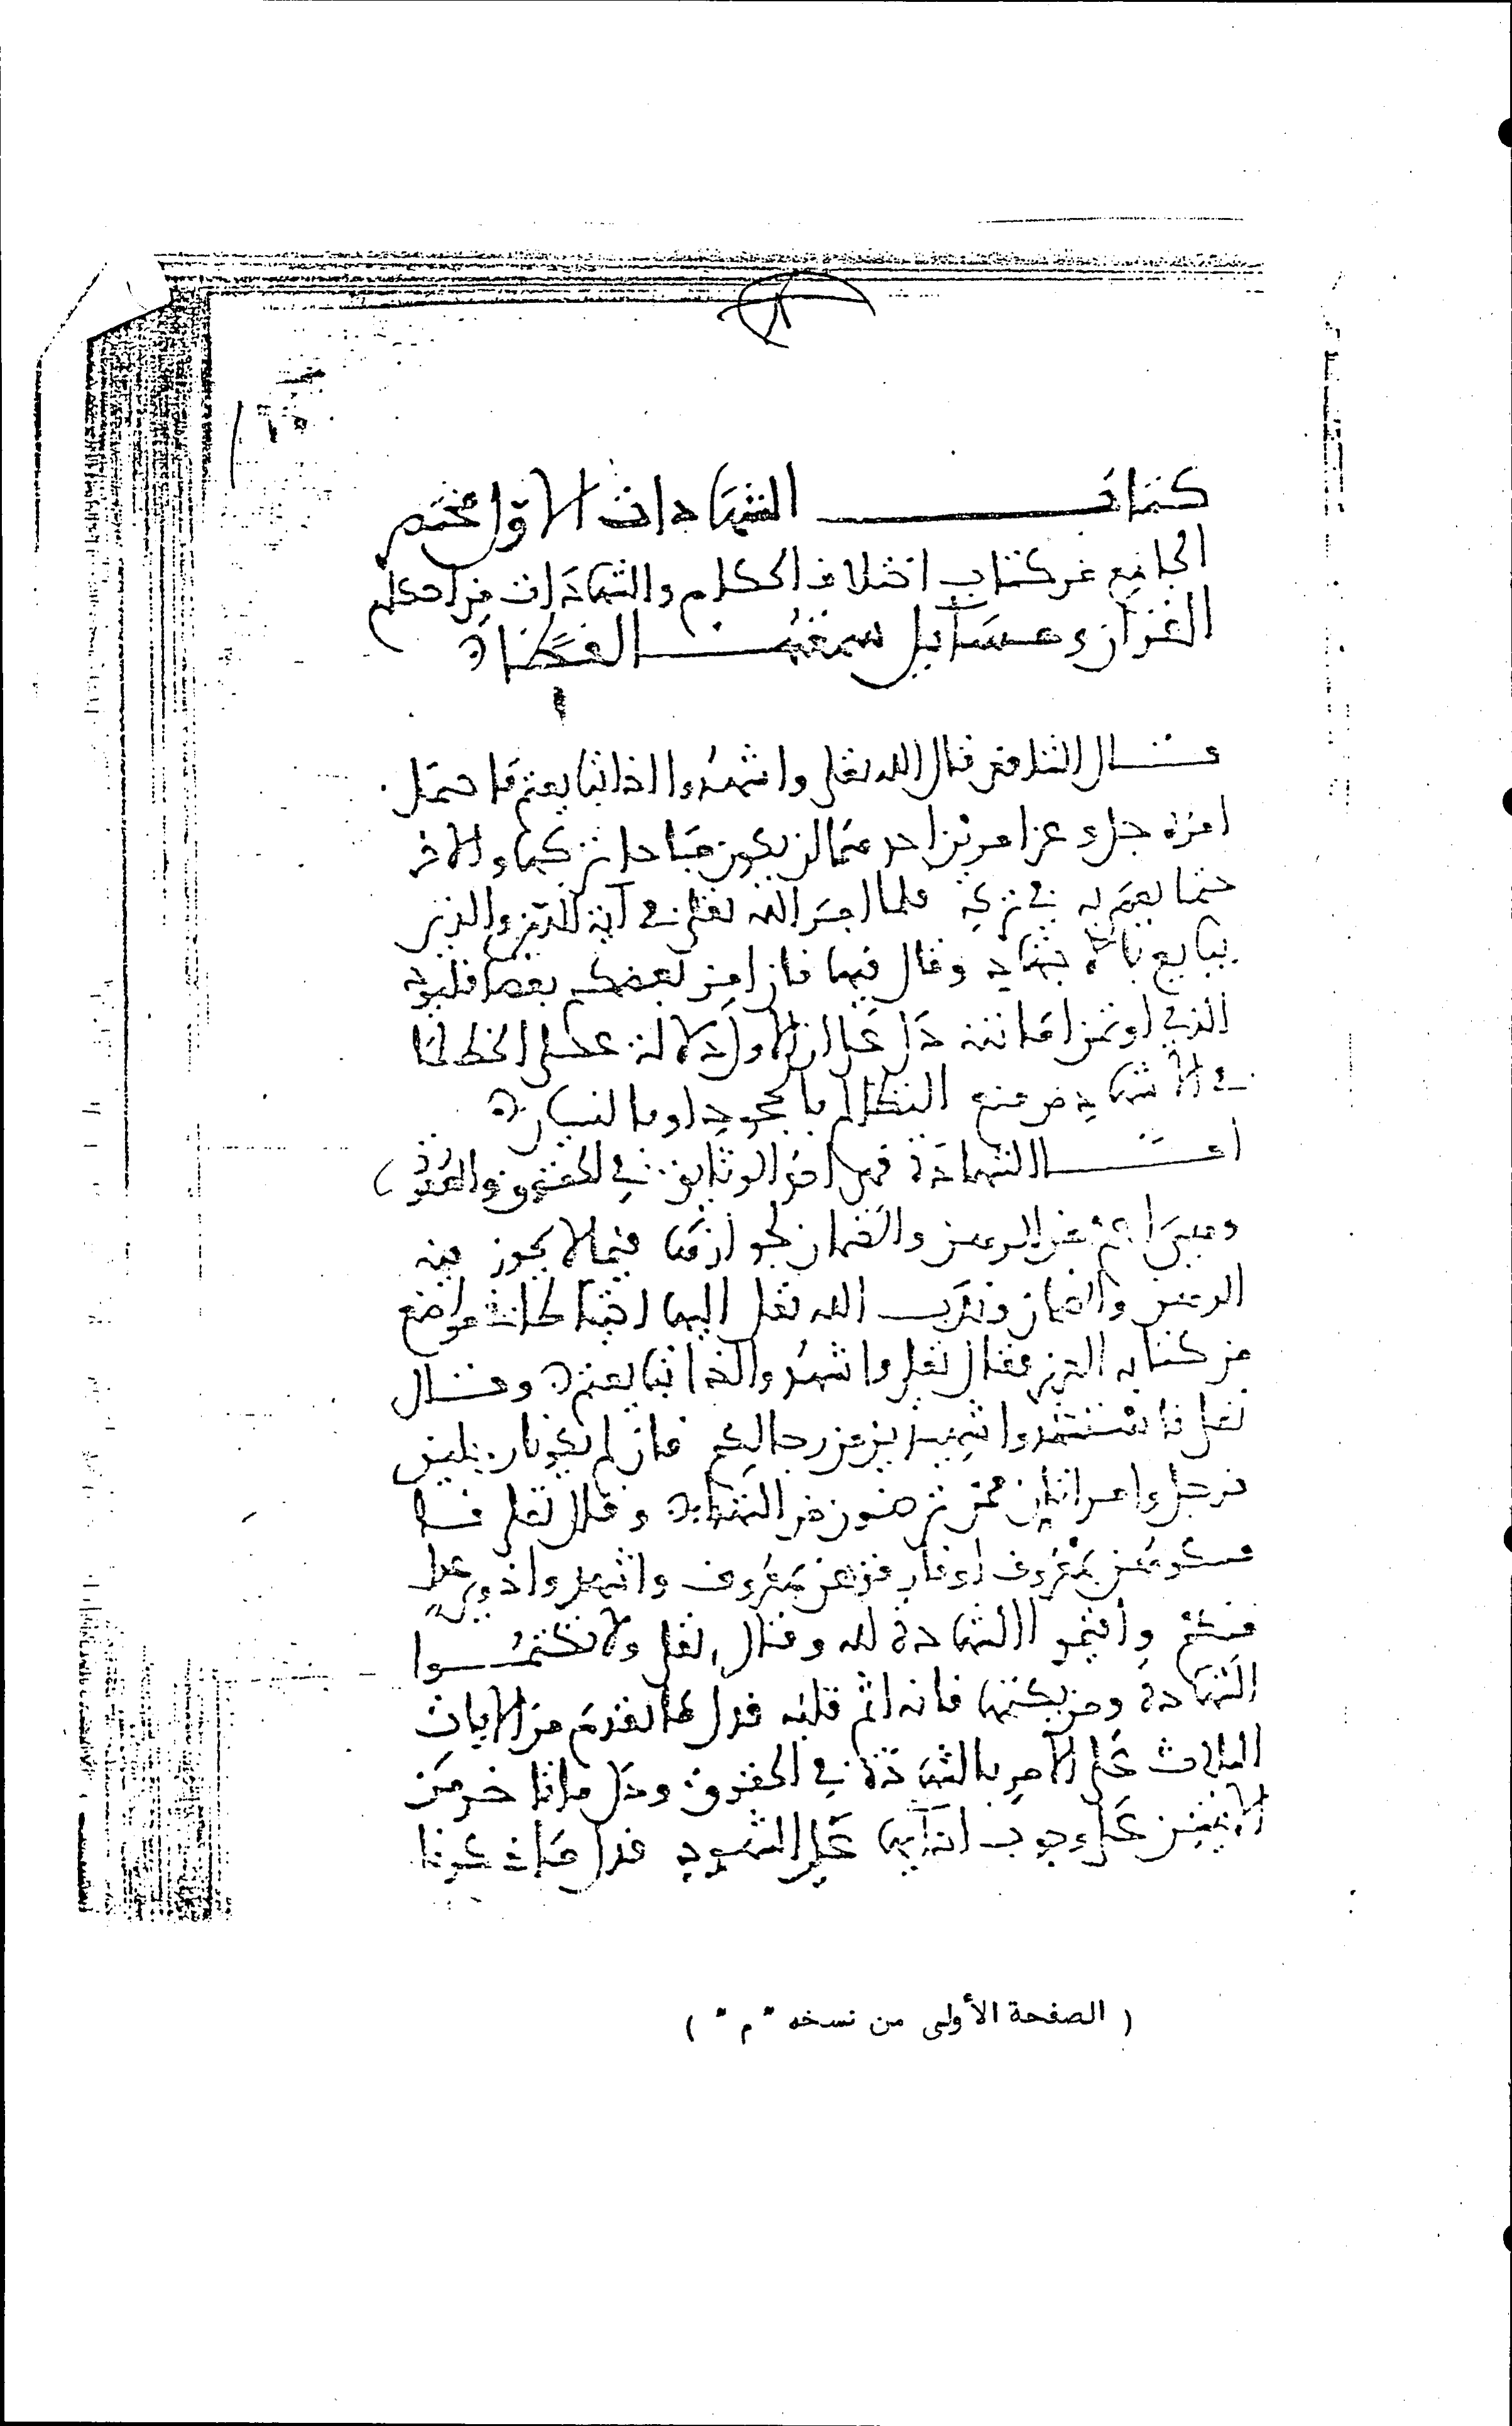 كتاب الشهادات الاول مختصر
الجامع من كتاب اختلاف الحكام والشهادات من احكام
القرآن ومسائل شتى
قال الشافعي قال الله تعلى واشهدوا اذا تبايعتم فاحتمل
امره جل وعز امرين احدهما ان يكون مباحا تركها والاخر
حتما يعصي به في تركه فلما امر الله تعلى في آية الدين والدين
تبايع بالاشهاد وقال فيها فان امن بعضكم بعضا فليود
الذي اوتمن امانته دل على ان الاولى دلالة على الحظ لما
في الاشهاد من منع التظالم بالجحود او بالنسيان
امّا الشهادة فهي احد الوثايق في الحقوق والعقود
وهي اعم من الرهن والضمان لجوازها فيما لا يجوز فيه
الرهن والضمان وندب الله تعلى اليها في ثلاث مواضع
من كتابه العزيز فقال تعلى واشهدوا اذا تبايعتم وقال
تعلى فاستشهدوا شهيدين من رجالكم فان لم يكونا رجلين
فرجل وامراتان ممن ترضون من الشهداء وقال تعلى فا
مسكوهن بمعروف او فارقوهن بمعروف واشهدوا ذوي عدل
منكم واقيموا الشهادة لله وقال تعلى ولا تكتموا
الشهادة ومن يكتمها فانه اثم قلبه فدل ما تقدم من الايات
الثلاث على الامر بالشهادة في الحقوق ودل ما تاخر من
الايتين على وجوب ادايها على الشهود فدل
( الصفحة الأولى من نسخه " م " )